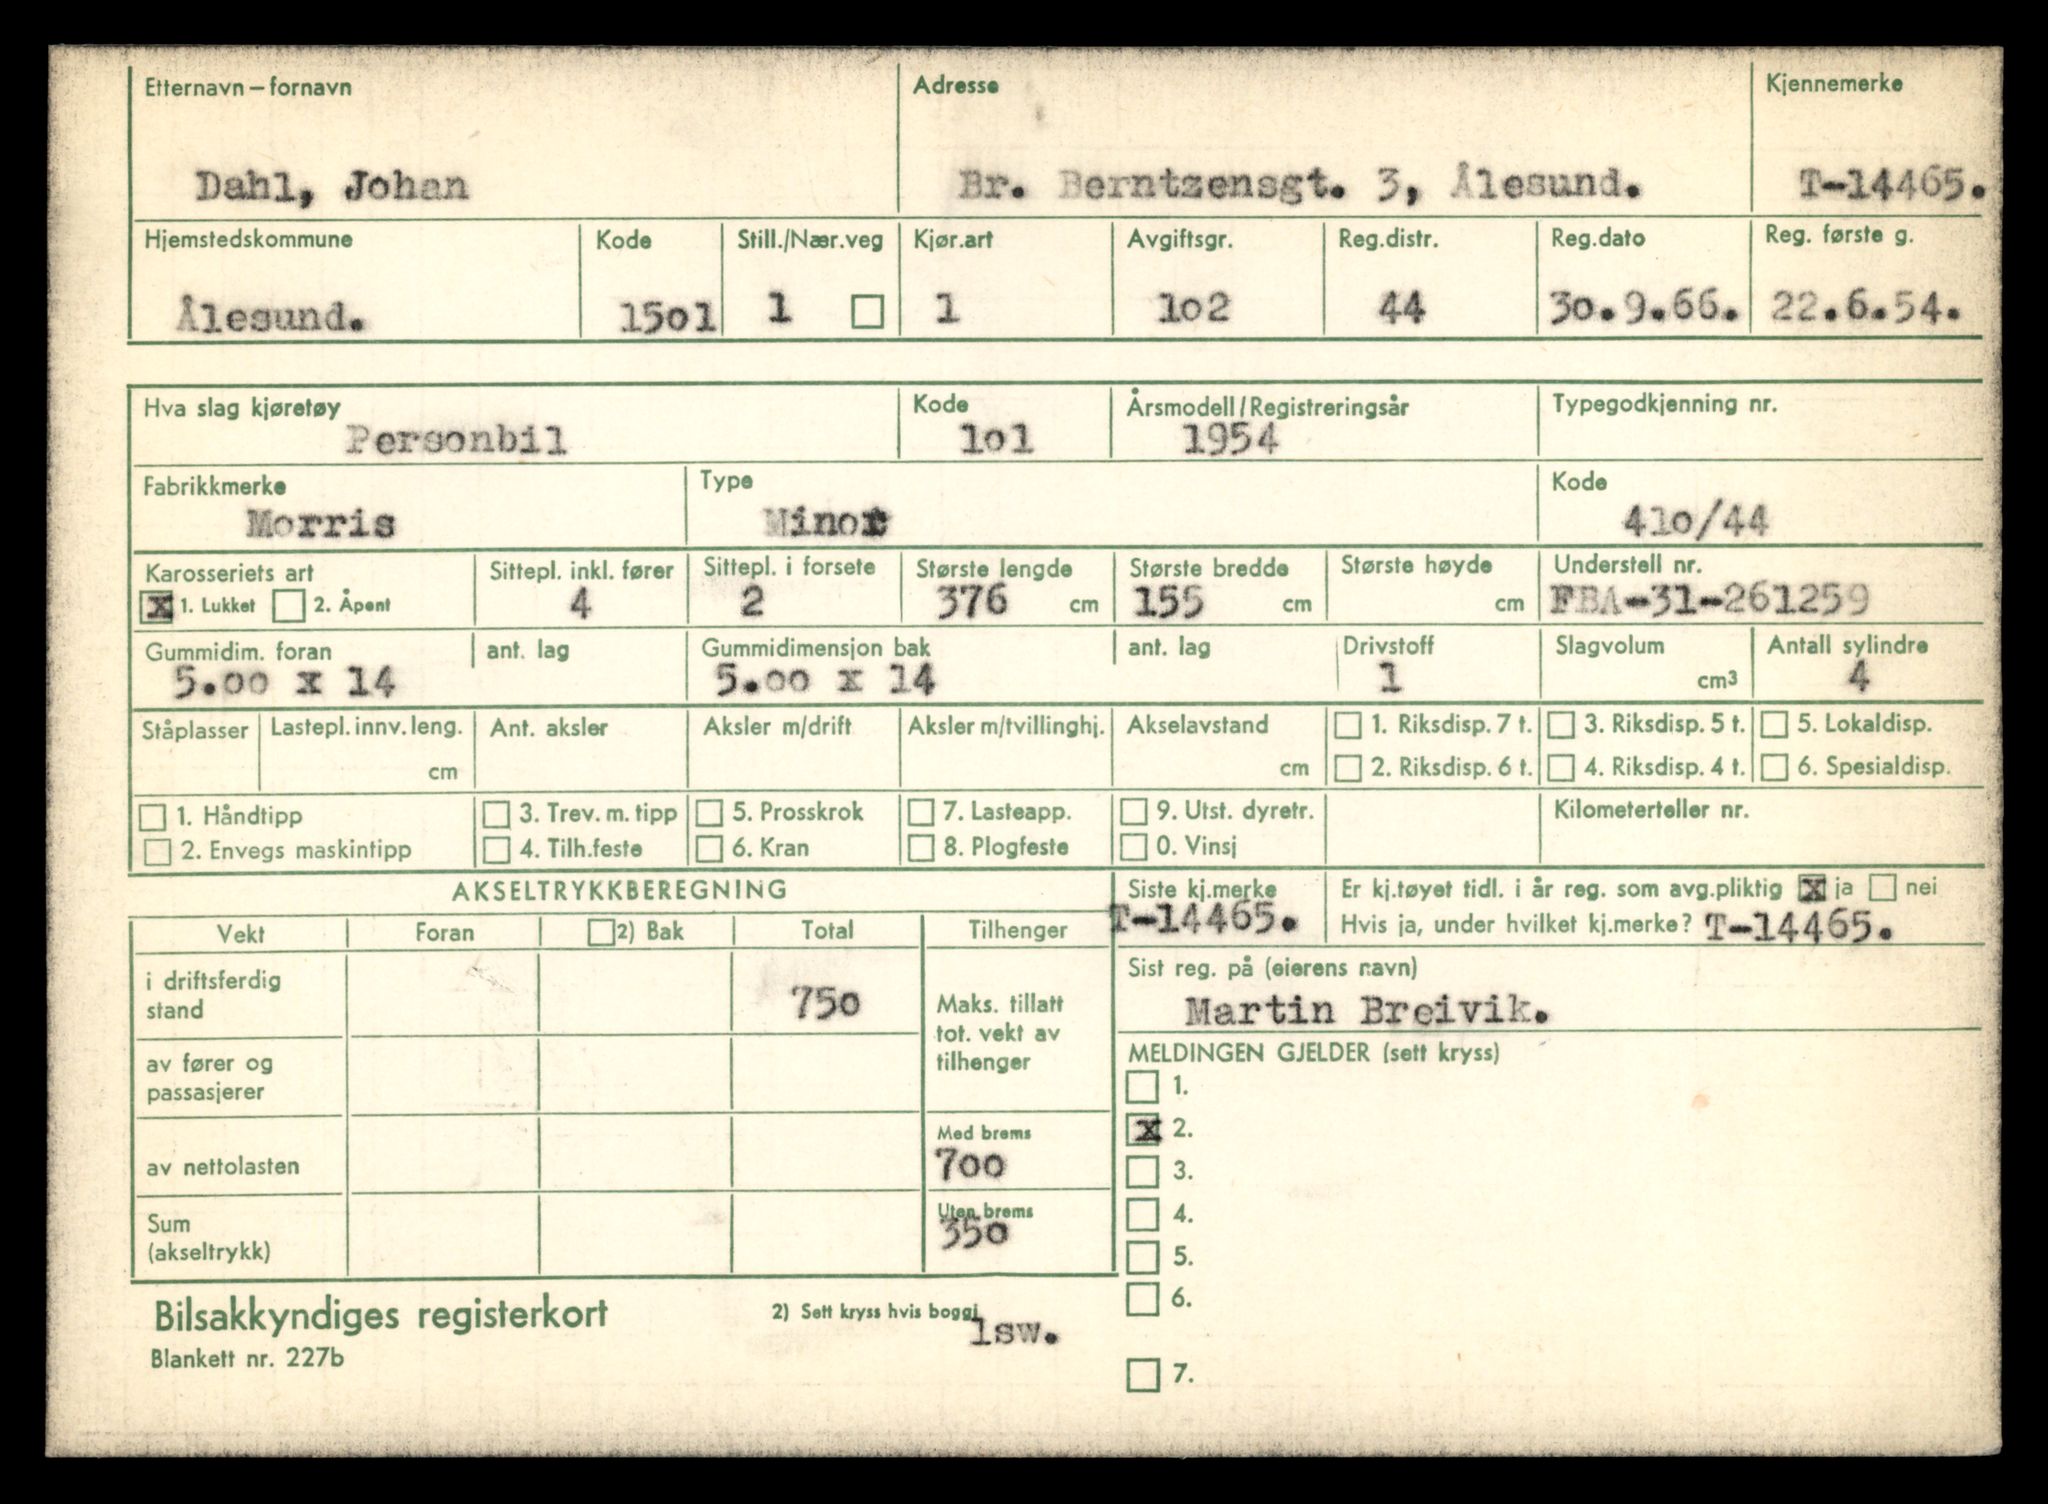 Etternavn – fornavn Adresse Kjennemerke
Dahl, Johan Br. Berntzensgt. 3, Ålesund. T-14465.
Hjemstedskommune Kode Still./Nær.veg Kjør.art Avgiftsgr. Reg.distr. Reg.dato Reg. første g.
Ålesund. 15o1 1 1 1o2 44 3o.9.66. 22.6.54.
Hva slag kjøretøy Kode Årsmodell/Registreringsår Typegodkjenning nr.
Personbil 1o1 1954
Fabrikkmerke Type Kode
Morris Minor 41o/44
Karosseriets art Sittepl. inkl. fører Sittepl. i forsete Største lengde Største bredde Største høyde Understell nr.
x 1. Lukket 2. Åpent 4 2 376 cm 155 cm cm FBA-31-261259
Gummidim. foran ant. lag Gummidimensjon bak ant. lag Drivstoff Slagvolum Antall sylindre
5.oo x 14 5.oo x 14 1 cm3 4
Ståplasser Lastepl. innv. leng. Ant. aksler Aksler m/drift Aksler m/tvillinghj. Akselavstand 1. Riksdisp. 7 t. 3. Riksdisp. 5 t. 5. Lokaldisp.
cm cm 2. Riksdisp. 6 t. 4. Riksdisp. 4 t. 6. Spesialdisp.
1. Håndtipp 3. Trev. m. tipp 5. Prosskrok 7. Lasteapp. 9. Utst. dyretr. Kilometerteller nr.
2. Envegs maskintipp 4. Tilh.feste 6. Kran 8. Plogfeste 0. Vinsj
AKSELTRYKKBEREGNING Siste kj.merke Er kj.tøyet tidl. i år reg. som avg.pliktig x ja nei
T-14465. Hvis ja, under hvilket kj.merke? T-14465.
Vekt Foran 2) Bak Total Tilhenger
Sist reg. på (eierens navn)
i driftsferdig stand 75o Maks. tillatt tot. vekt av tilhenger
Martin Breivik.
av fører og passasjerer
MELDINGEN GJELDER (sett kryss)
1.
x 2.
av nettolasten Med brems 7oo
3.
Sum (akseltrykk) Uten brems 35o
4.
5.
6.
Bilsakkyndiges registerkort 2) Sett kryss hvis boggi
lsw.
Blankett nr. 227b
7.